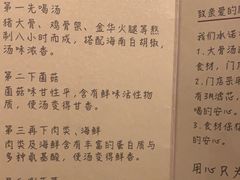 第一先喝汤
猪大骨、鸡骨架、金华火腿等熬
制八小时而成，搭配海南白胡椒，
汤味浓香。
第二下菌菇
菌菇味甘性平，含有鲜味活性物
质，使汤变得甘香。
第三再下肉类，海鲜
肉类及海鲜含有丰富的蛋白质与
多种氨基酸，使汤变得鲜甜。
致亲爱的
我们承诺
1、大骨汤
食材，门
2、门店采
有3M滤芯，
喝的安心。
3、食材保
的安心。
用心只为